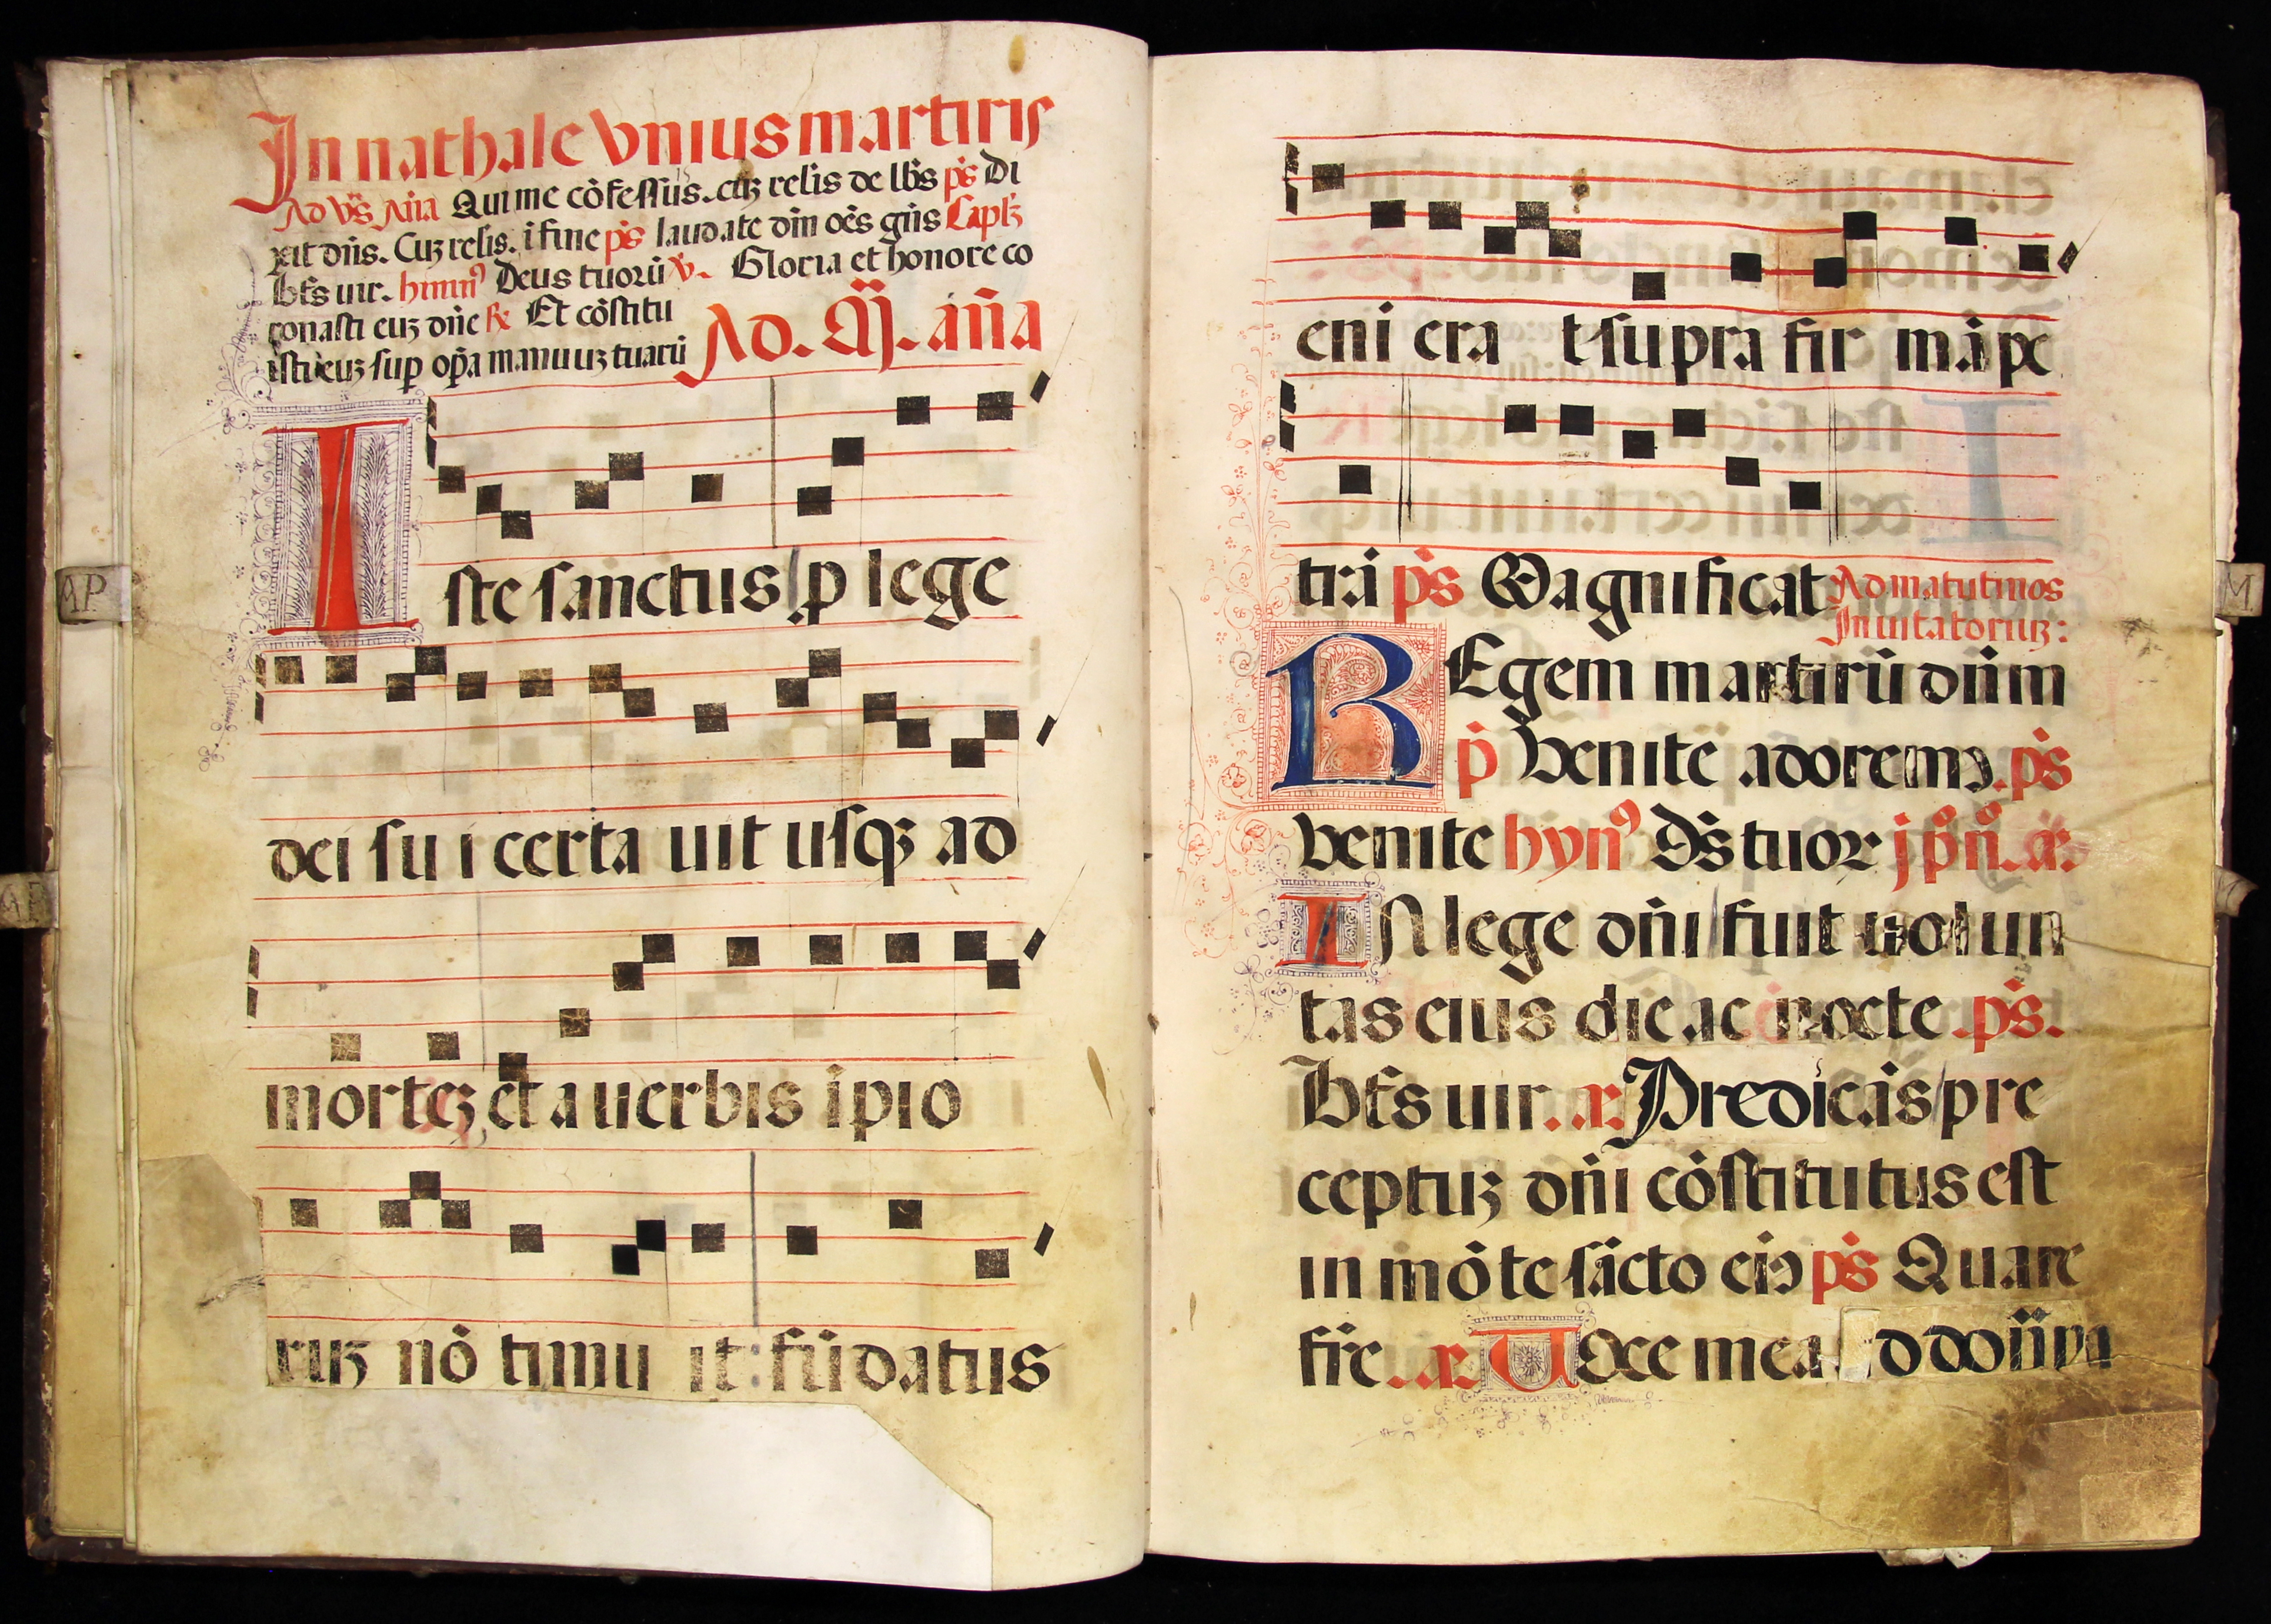 In nathale vnius martiris
Ad vs̄ Añа Qui me cōfessus. cuȝ relis de lbs ps Di
xit dn̄s. Cuȝ relis. i fine ps laudate dn̄m oēs gn̄s Capłȝ
bt̄s uir. himnꝰ Deus tuorū ℣. Gloria et honore co
ronasti euȝ dn̄e ℟ Et cōstitu
isti euȝ sup op̄a manuuȝ tuarū Ad. M̄. an̄a
Iste sanctus ꝓ lege
dei su i certa uit usqȝ ad
morteȝ et a uerbis ipio
ruȝ nō timu it: fūdatus
eni era t supra fir mā pe
trā ps Magnificat Ad matutinos
Inuitatoriuȝ:
REgem martirū dn̄m
p̄ Venite adoremꝰ. ps
Venite hynꝰ Ds̄ tuor j p̄ n̄. a.
IN lege dn̄i fuit uolun
tas eius die ac nocte. ps.
Bt̄s uir. a. Predicās pre
ceptuȝ dn̄i cōstitutus est
in mōte sācto eiꝰ ps Quare
fr̄e. a. VOce mea